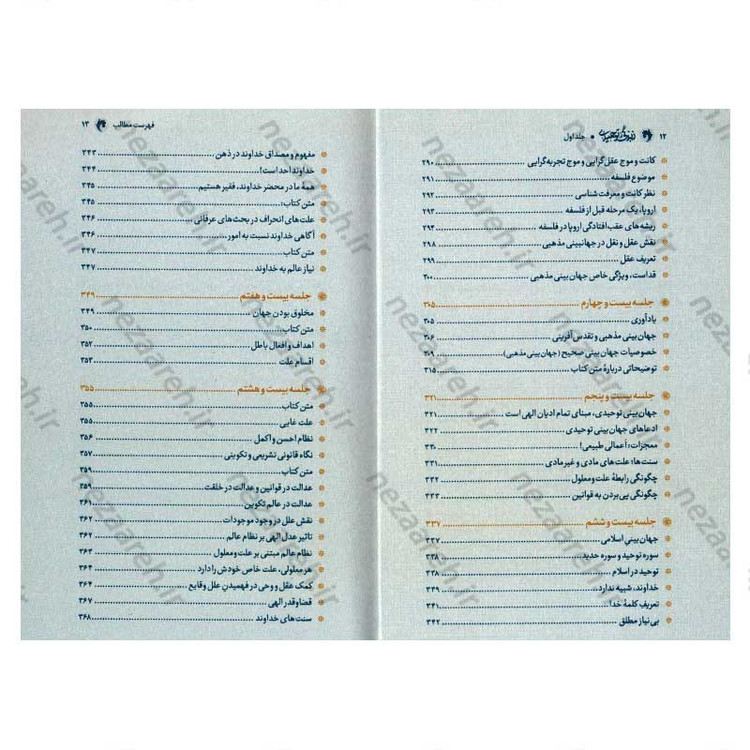 ۱۲ • جلد اول
کانت و موج عقل‌گرایی و موج تجربه‌گرایی ۲۹۰
موضوع فلسفه ۲۹۱
نظر کانت و معرفت شناسی ۲۹۲
اروپا، یک مرحله قبل از فلسفه ۲۹۳
ریشه‌های عقب افتادگی اروپا در فلسفه ۲۹۴
نقش عقل و نقل در جهانبینی مذهبی ۲۹۸
تعریف عقل ۲۹۹
قداست، ویژگی خاص جهان بینی مذهبی ۳۰۰
جلسه بیست و چهارم ۳۰۵
یادآوری ۳۰۵
جهان بینی مذهبی و تقدس آفرینی ۳۰۶
خصوصیات جهان بینی صحیح (جهان بینی مذهبی) ۳۰۹
توضیحاتی دربارهٔ متن کتاب ۳۱۵
جلسه بیست و پنجم ۳۲۱
جهان بینی توحیدی، مبنای تمام ادیان الهی است ۳۲۱
ادعاهای جهان بینی توحیدی ۳۲۲
معجزات؛ اعمالی طبیعی! ۳۳۰
سنت‌ها؛ علت‌های مادی و غیرمادی ۳۳۱
چگونگی رابطهٔ علت و معلول ۳۳۲
چگونگی پی بردن به قوانین ۳۳۳
جلسه بیست و ششم ۳۳۷
جهان بینی اسلامی ۳۳۷
سوره توحید و سوره حدید ۳۳۸
توحید در اسلام ۳۳۸
خداوند، شبیه ندارد ۳۳۹
تعریف کلمهٔ خدا ۳۴۱
بی نیاز مطلق ۳۴۲
فهرست مطالب ۱۳
مفهوم و مصداق خداوند در ذهن ۳۴۳
خداوند احد است! ۳۴۴
همهٔ ما در محضر خداوند، فقیر هستیم ۳۴۵
متن کتاب: ۳۴۵
علت‌های انحراف در بحث‌های عرفانی ۳۴۶
آگاهی خداوند نسبت به امور ۳۴۶
متن کتاب ۳۴۷
نیاز عالم به خداوند ۳۴۷
جلسه بیست و هفتم ۳۴۹
مخلوق بودن جهان ۳۴۹
متن کتاب ۳۵۰
اهداف و افعال باطل ۳۵۲
اقسام علت ۳۵۳
جلسه بیست و هشتم ۳۵۵
متن کتاب ۳۵۵
علت غایی ۳۵۵
نظام احسن و اکمل ۳۵۶
نگاه قانونی تشریعی و تکوینی ۳۵۷
متن کتاب ۳۵۹
عدالت در قوانین و عدالت در خلقت ۳۵۹
عدالت در عالم تکوین ۳۶۱
نقش علل در وجود موجودات ۳۶۲
تاثیر عدل الهی بر نظام عالم ۳۶۲
نظام عالم مبتنی بر علت و معلول ۳۶۳
هر معلولی، علت خاص خودش را دارد ۳۶۴
کمک عقل و وحی در فهمیدن علل و وقایع ۳۶۴
قضا و قدر الهی ۳۶۷
سنت‌های خداوند ۳۶۸
nezaareh.ir